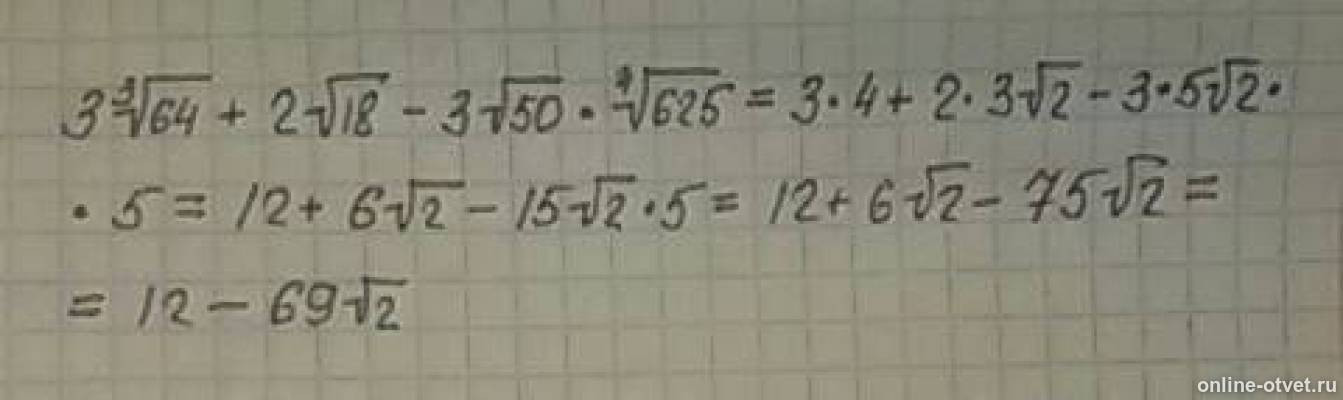 3∛64 + 2√18 - 3√50 · ∜625 = 3·4 + 2·3√2 - 3·5√2·
· 5 = 12 + 6√2 - 15√2·5 = 12 + 6√2 - 75√2 =
= 12 - 69√2
online-otvet.ru